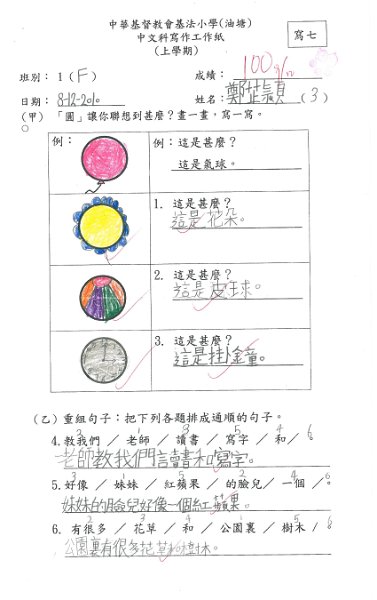 中華基督教會基法小學(油塘)
中文科寫作工作紙
(上學期)
寫七
班別：1(F)
成績：100分
日期：8-12-2010
姓名：鄭芷穎(3)
(甲) 「圓」讓你聯想到甚麼？畫一畫，寫一寫。
例：
例：這是甚麼？
這是氣球。
1. 這是甚麼？
這是花朵。
2. 這是甚麼？
這是皮球。
3. 這是甚麼？
這是掛金童。
(乙) 重組句子：把下列各題排成通順的句子。
4.教我們 ／ 老師 ／ 讀書 ／ 寫字 ／ 和 ／ 。
老師教我們讀書和寫字。
5.好像 ／ 妹妹 ／ 紅蘋果 ／ 的臉兒 ／ 一個 ／ 。
妹妹的臉兒好像一個紅蘋果。
6. 有很多 ／ 花草 ／ 和 ／ 公園裏 ／ 樹木 ／ 。
公園裏有很多花草和樹林。